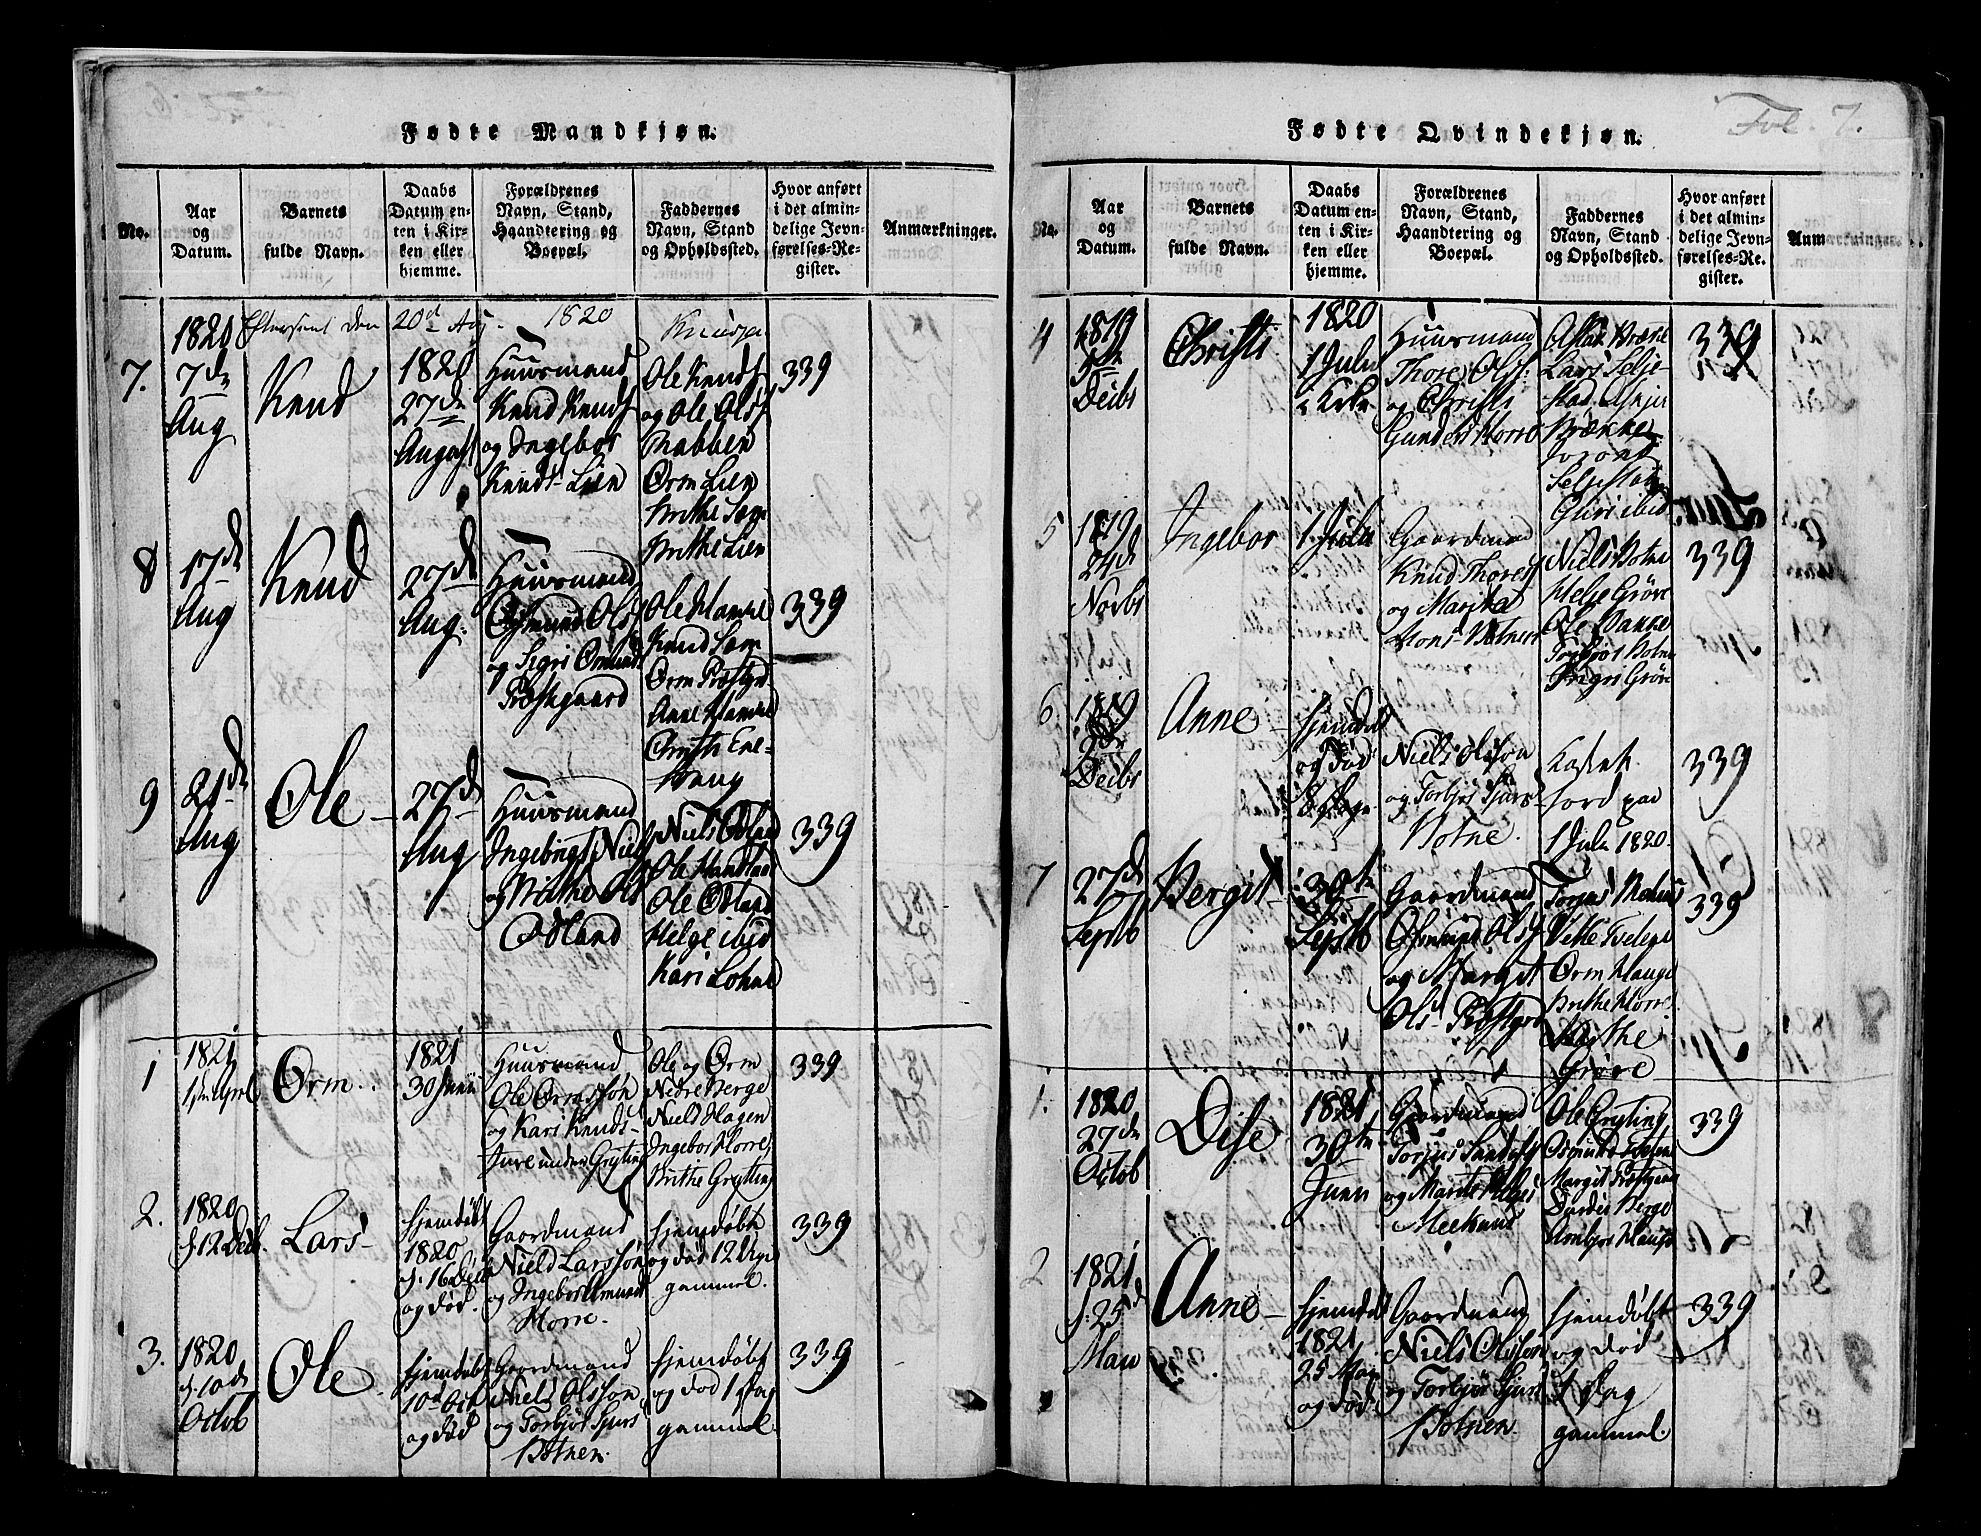 Fødte Mandkjøn.
No.
Aar og Datum.
Barnets fulde Navn.
Daabs Datum enten i Kirken eller hjemme.
Forældrenes Navn, Stand, Haandtering og Boepæl.
Faddernes Navn, Stand og Opholdssted.
Hvor anført i det almindelige Jevnførelses-Register.
Anmærkninger.
1820
20d Aug. 1820
7.
7de
Aug
Knud
1820
27de
August
Huusmand
Knud Knuds
og Ingebor
Knuds Lien
Ole Knuds
og Ole Ols
Nabben
Orm Lien
Brithe Sem
Brithe Lien
339
8
17de
Aug
Knud
27de
Aug:
Huusmand
Osmund Ols
og Segri Omunds
Præstgaard
Ole Hamre
Knud Sem
Orm Præstgrd
Anne Hamre
339
9
21de
Aug
Ole
27de
Aug
Huusmand
Niels
og Brithe Ols
Odland
Niels Odland
Ole
Ole Odland
Helge ibid
Kari Lohne
339
1
1821
April
Orm
1821
30 Junii
Huusmand
Ole Ormssøn
og Kari Knuds-
Jure under Gryting
Ole og Orm
Nedre Berge
Niels Hagen
Ingebor Horre
Brithe Gryting
339
2.
1820
d. 12 Decb.
Lars
hjemdøbt
1820
d. 16 Decb
og død.
Gaardmand
Niels Larssøn
og Ingebor Omunds
Horre.
hjemdøbt
og død 12 Dage
gammel.
339
3.
1820
d. 10de
Octob
Ole
hjemdøbt
10d Oct
og død
Gaardmand
Niels Olsson
og Torbjør Sjurs
Botnen.
hjemdøbt
og død 1 Dag
gammel
339
Fol. 7.
Fødte Qvindekjøn.
No.
Aar og Datum.
Barnets fulde Navn.
Daabs Datum enten i Kirken eller hjemme.
Forældrenes Navn, Stand, Haandtering og Boepæl.
Faddernes Navn, Stand og Opholdssted.
Hvor anført i det almindelige Jevnførelses-Register.
Anmærkninger.
4
1819
Decbr
Christi
1820
1 Juli
Huusmand
Thore Ols:
og Christi
Gunders Horre
Lars Selje-
stad
Seljestad
Guri ibid
339
5
1819
24de
Novbr
Ingebor
1 Juli
Gaardmand
Knud Thores
og Marita
Botnen
Niels Botne
Helje Grøve
Ole Bakke
Torbjør Botne
Ingri Grøve
339
6
1819
Decbr
Anne
hjemdøbt
og død
Niels Olsson
og Torbjør Sjurs
Botne.
Kastet
Jord paa
1 Juli 1820.
339
7
27de
Septb
Bergit
30te
Septb
Gaardmand
Osmund Ols
og Marget
Ols Præstgrd
Orm Hauge
Brithe Horre
Grøve
339
1.
1820
27de
Octob
Dise
1821
30te
Juni
Gaardmand
og Marite
Ole Gryting
Margit Præstgaard
Durdei Berge
339
2
1821
d. 25d
Mai
Anne
hjemdøbt
1821
25 Mai
og død
Gaardmand
Niels Olsson
og Torbjør Sjurs
Botnen.
hjemdøbt
og død
1 Dag
gammel.
339